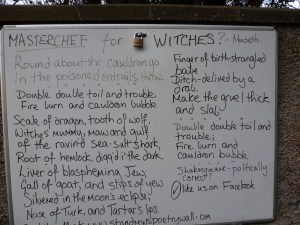 MASTERCHEF for WITCHES? - Macbeth
Round about the cauldron go
In the poisoned entrails throw
Double double toil and trouble,
Fire burn and cauldron bubble
Scale of dragon, tooth of wolf,
Witches mummy, maw and gulf
of the ravin'd sea-salt shark,
Root of hemlock digg'd i' the dark
Liver of blaspheming Jew,
Gall of goat, and slips of yew
Silvered in the moon's eclipse,
Nose of Turk, and Tartar's lips
www.standrewspoetrywall.com
Finger of birth-strangled
babe
Ditch-delivered by a
drab
Make the gruel thick
and slab
Double double toil and
trouble;
Fire burn and
cauldron bubble
Shakespeare - politically
correct?
like us on Facebook